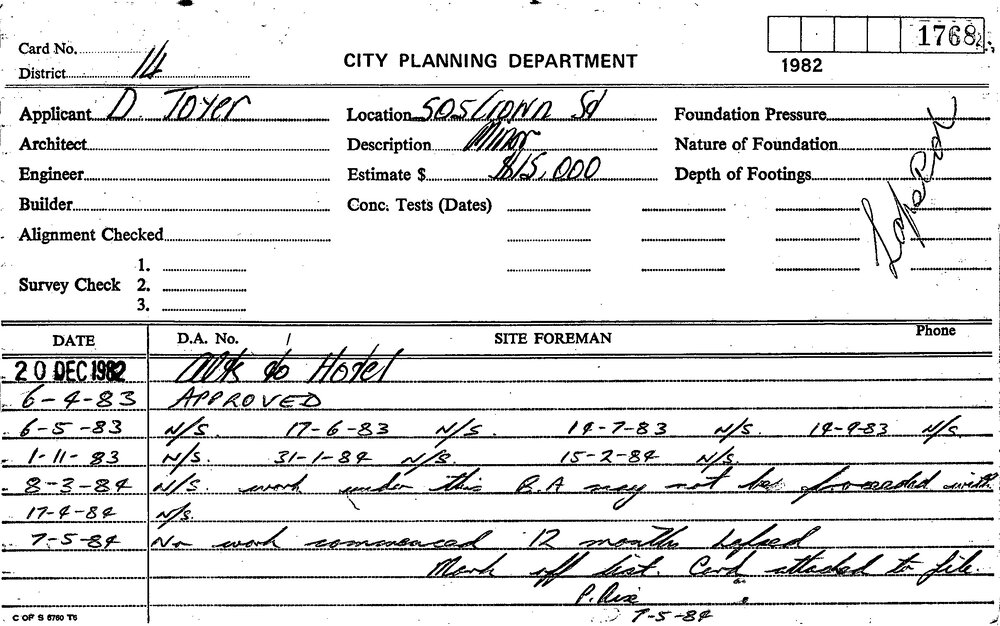 Card No.
1768
District 14
CITY PLANNING DEPARTMENT
1982
Applicant D. Toyer Location 505 Crown St Foundation Pressure
Architect Description Minor Nature of Foundation
Engineer Estimate $ $15,000 Depth of Footings
Builder Conc. Tests (Dates)
Alignment Checked
Survey Check 1.
2.
3.
DATE D.A. No. SITE FOREMAN Phone
20 DEC 1982 Alts to Hotel
6-4-83 APPROVED
6-5-83 N/S. 17-6-83 N/S. 14-7-83 N/S. 14-9-83 N/S.
1-11-83 N/S. 31-1-84 N/S. 15-2-84 N/S.
8-3-84 N/S. work under this B.A may not be proceeded with
17-4-84 N/S.
7-5-84 No work commenced 12 months Lapsed
Mark off list. Card attached to file.
7-5-84
C OF S 6760 T6